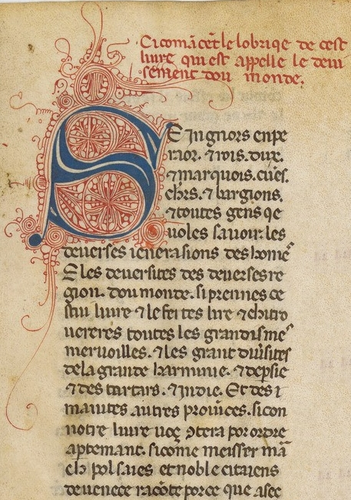 Ci comācēt le lobrique de cest
livre qui est appelle le deui
sement dou monde.
Seingnors enpe
raor. ⁊ rois. dux.
⁊ marquois. cūes.
chrs. ⁊ bargions.
⁊ toutes gens qe
uoles sauoir. les
deuerses ienerasions des home˜
E les deuersites des deuerses re
gion. dou monde. si prennes ce
stui liure ⁊ le feites lire ⁊ chi trou
uereres toutes les grandismes
meruoilles. ⁊ les grant diuʼsites
de la grande harminie. ⁊ de psie
⁊ des tartars. ⁊ indie. Et des i
maintes autres prouīces. si con
notre liure uoꝫ ɔtera por ordre
aptemant. si come meisser mā
ch pol saies et noble citaiens
de uenece raɔte porce que a sec